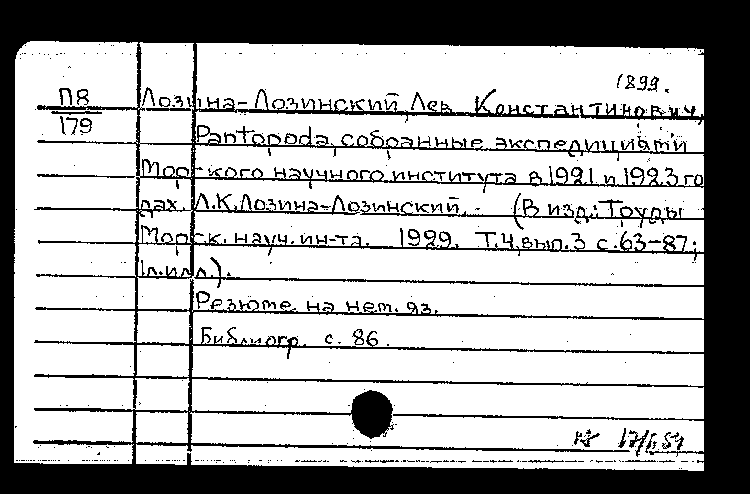 1899.
П8 Лозина-Лозинский, Лев Константинович,
179 Pantopoda, собранные экспедициями
Морского научного института в 1921 и 1923 го
дах. Л.К.Лозина-Лозинский. - (В изд.: Труды
Морск. науч. ин-та. 1929. Т.4, вып.3 с.63-87;
1л.илл.).
Резюме на нем. яз.
Библиогр. с. 86.